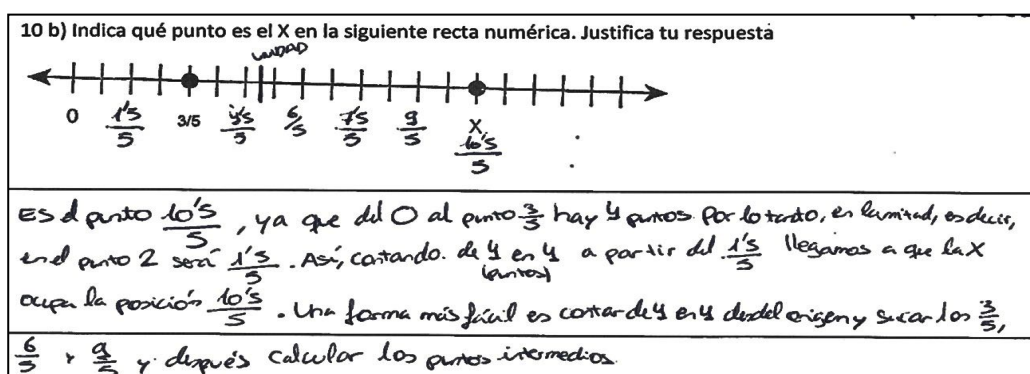 10 b) Indica qué punto es el X en la siguiente recta numérica. Justifica tu respuesta
UNIDAD
0 1's/5 3/5 4's/5 6/5 7's/5 9/5 X
10's/5
Es el punto 10's/5, ya que del 0 al punto 3/5 hay 4 puntos. Por lo tanto, en la mitad, es decir,
en el punto 2 será 1's/5. Así, contando de 4 en 4 (puntos) a partir del 1's/5 llegamos a que la X
ocupa la posición 10's/5. Una forma más fácil es contar de 4 en 4 desde el origen y sacar los 3/5,
6/5 y 9/5 y después calcular los puntos intermedios.